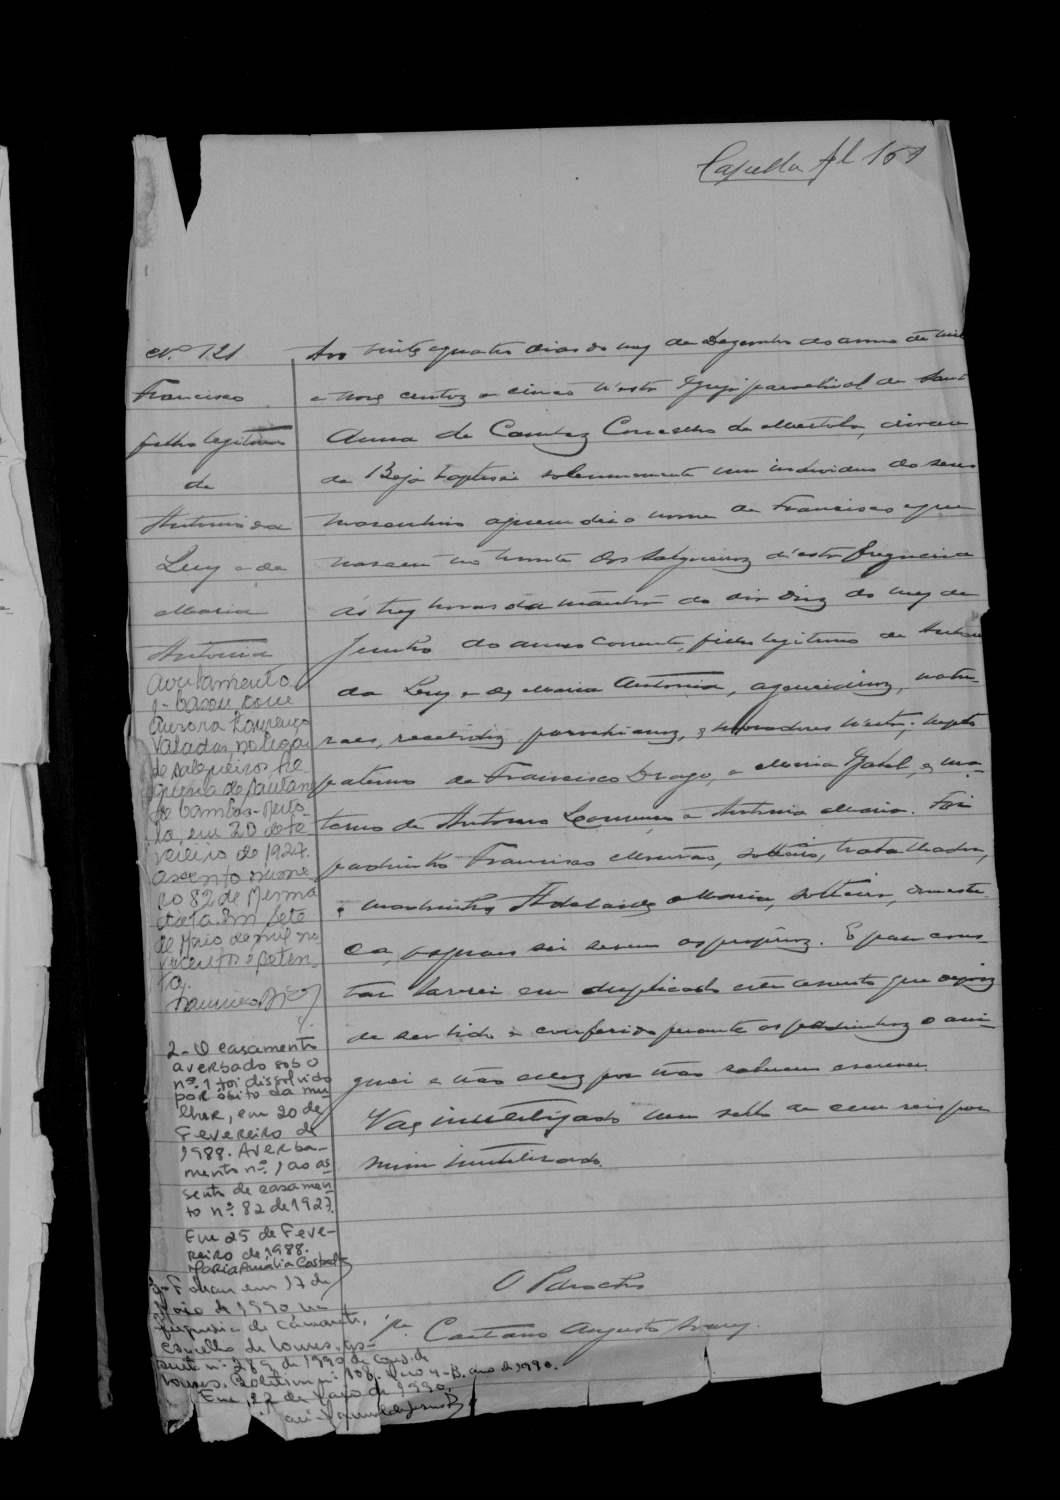 Capella Al 161
Nº 121
Francisco
filho legitimo
de
Antonio da
Luz e de
Maria
Antonia
Aos vinte e quatro dias do mez de Dezembro do anno de mil
e nove centos e cinco n'esta Egreja parochial de Sant
Anna de Cambas Concelho de Mertola, diocese
de Beja baptisei solemnemente um individuo do sexo
masculino a quem dei o nome de Francisco e que
nasceu no monte dos Salgueiros d'esta freguezia
ás tres horas da manhã do dia dez do mez de
Junho do anno corrente, filho legitimo de Antonio
da Luz e de Maria Antonia, natu-
raes, recebidos parochianos, e moradores n'esta; neto
paterno de Francisco Drago, e Maria Izabel, e ma-
terno de Antonio Lourenço e Antonia Maria. Foi
padrinho Francisco solteiro, trabalhador,
e madrinha Maria, solteira, domesti-
ca, os quaes sei serem os proprios. E para cons-
tar lavrei em duplicado este assento que depois
de ser lido e conferido perante os padrinhos o assi-
gnei e não elles por não saberem escrever.
Vae inutilizado um sello de cem reis por
mim inutilizado.
O Parocho
Caetano Augusto
Averbamento
1- Casou com
Aurora Lourenço
Valadas, no lugar
de Salgueiros fre-
guesia de Santana
de Cambas - Mérto-
la, em 20 de fe-
vereiro de 1927.
Assento núme-
ro 82 de
data. Em sete
de Maio de mil no-
vecentos e seten-
ta.
2- O casamento
averbado sob o
nº. 1 foi dissolvido
por óbito da mu-
lher, em 20 de
Fevereiro de
1988. Averba-
mento nº. 1 ao as-
sento de casamen-
to nº. 82 de 1927.
Em 25 de Feve-
reiro de 1988.
Maria Amália
3- Faleceu em 17 de
Maio de 1990 na
freguesia de Camarate,
concelho de Loures. As-
sento nº 289 de 1990 da Cons. de
Loures. Boletim nº 108, ano de 1990.
Em 22 de Maio de 1990.